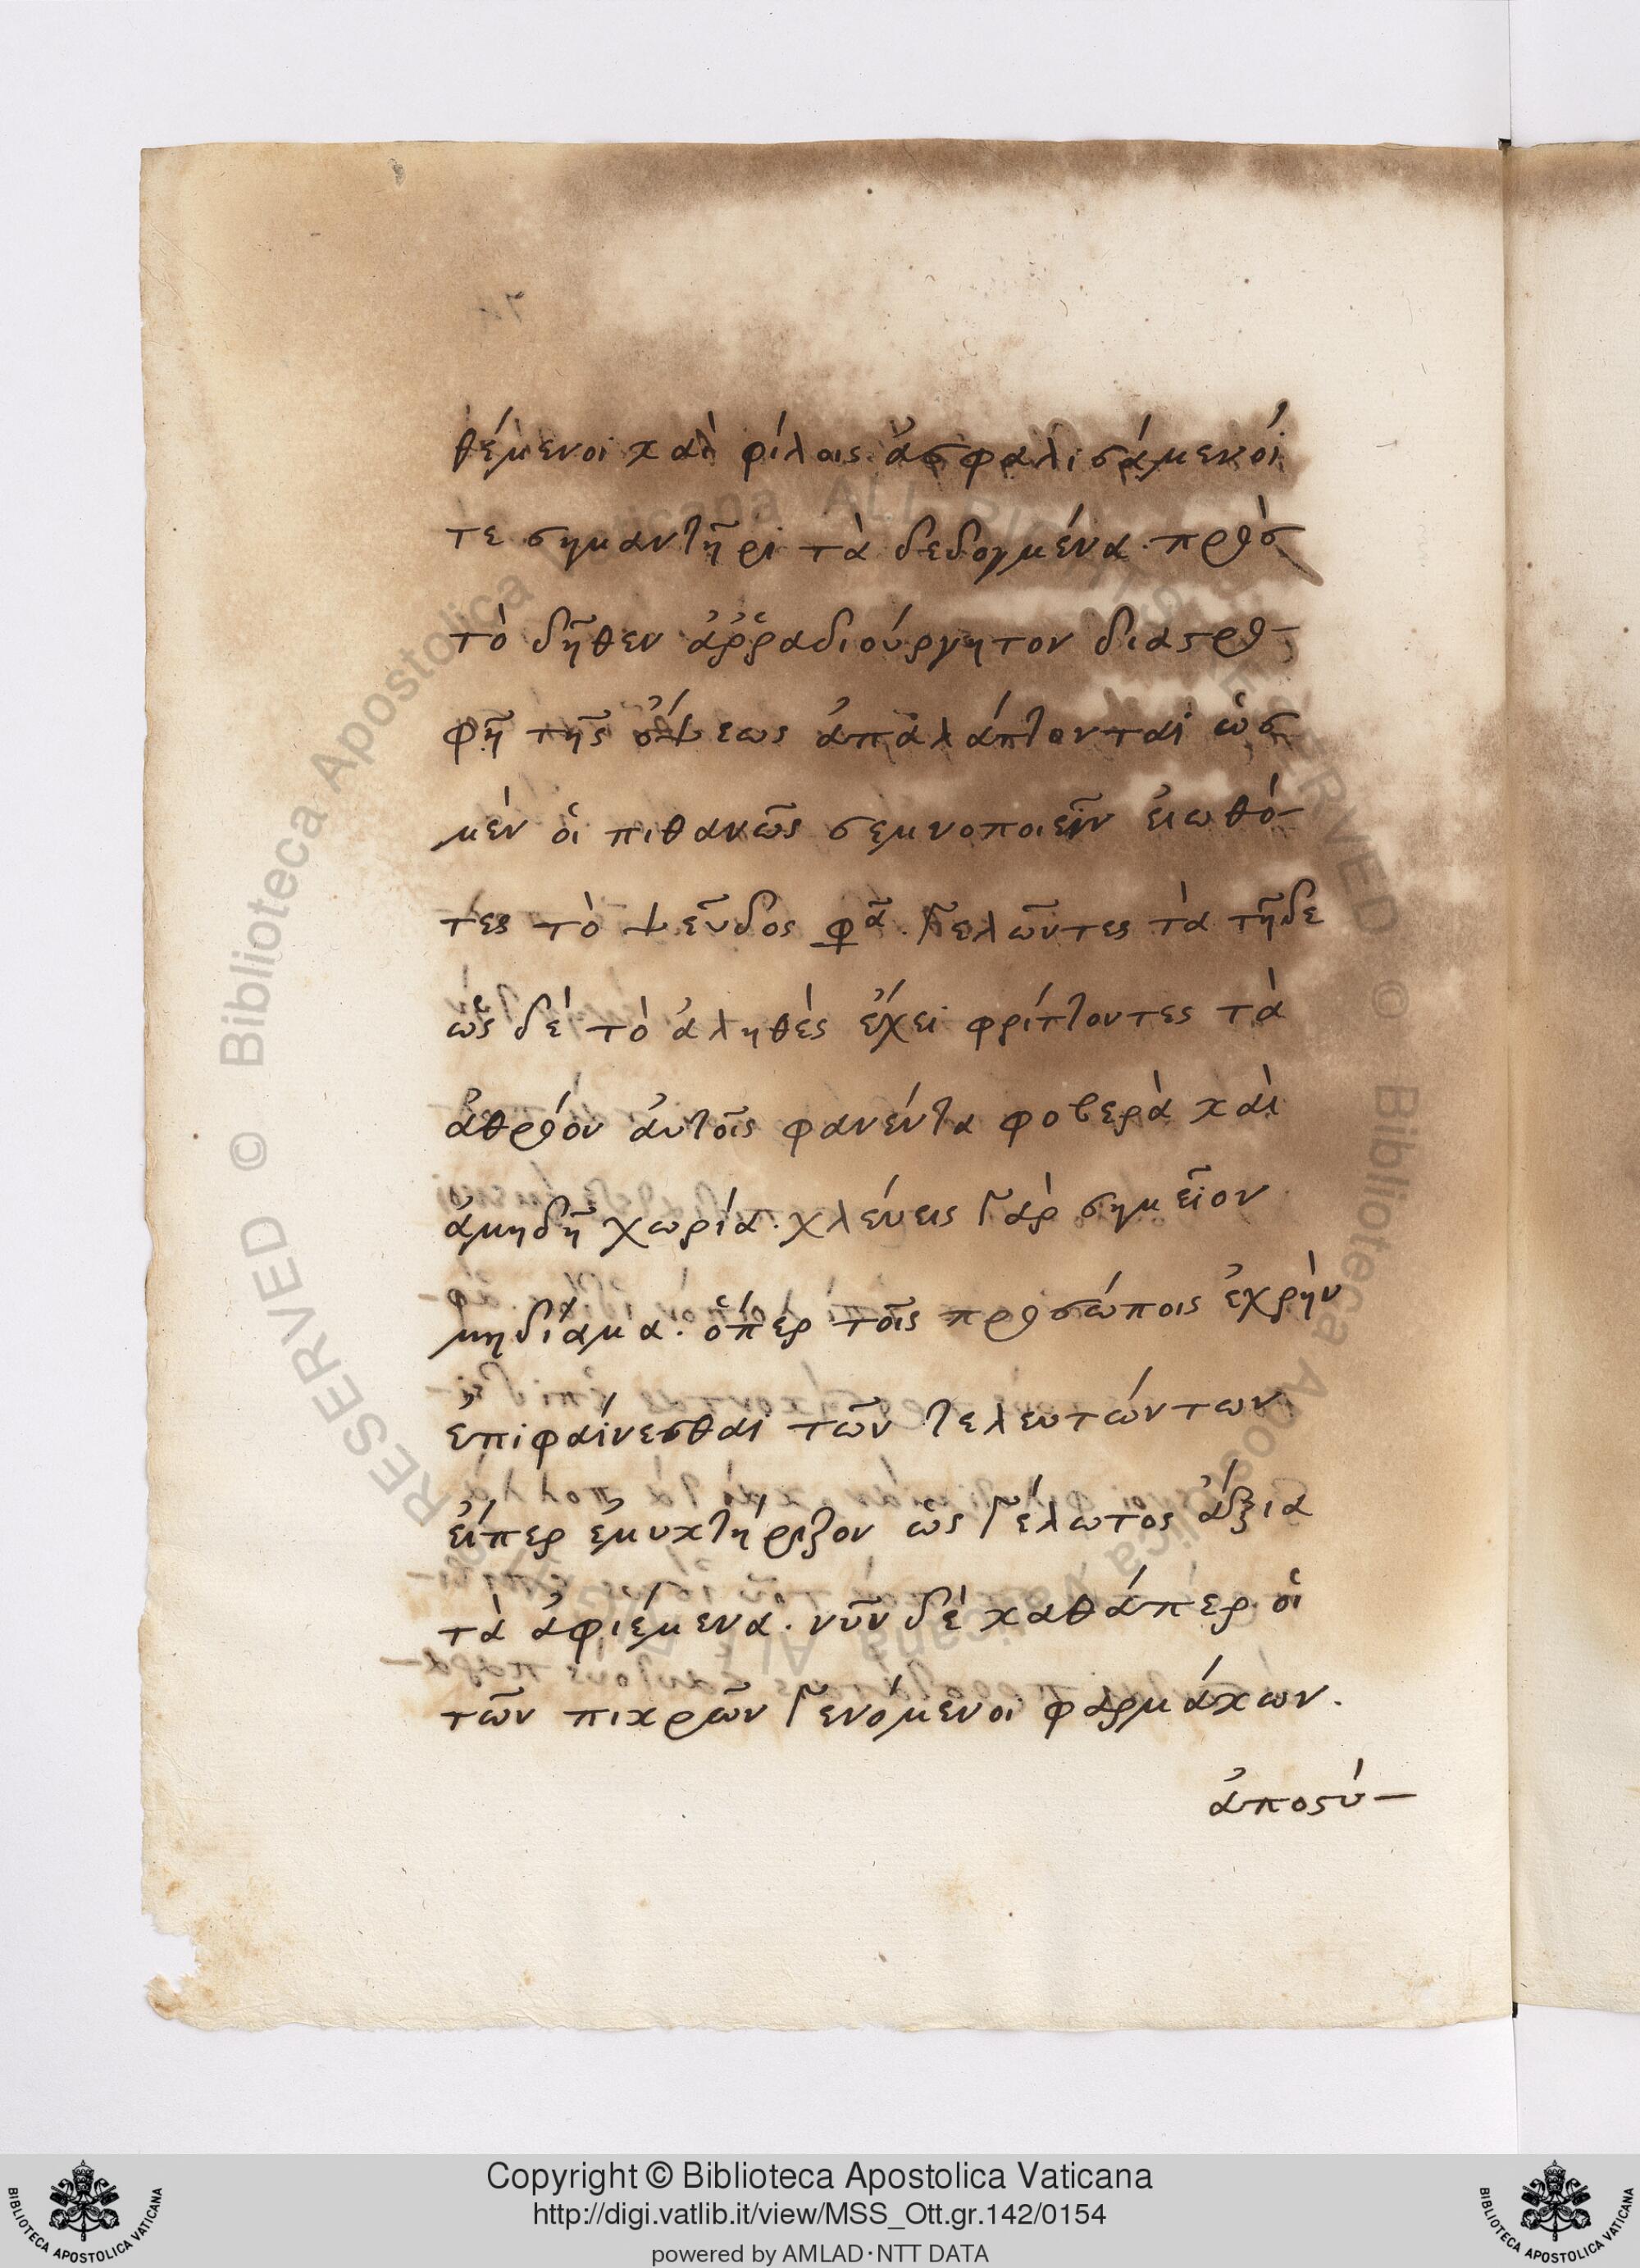 θέμενοι καὶ φίλοις ἀσφαλισάμενοί
τε σημαντῆρι τὰ δεδογμένα. πρὸς
τὸ δῆθεν ἀῤῥαδιούργητον διαστρο-
φῇ τῆς ὄψεως ἀπαλάττονται ὡς
μὲν οἱ πιθανῶς σεμνοποιεῖν εἰωθό-
τες τὸ ψεῦδος φα. γελῶντες τὰ τῇδε
ὡς δὲ τὸ ἀληθὲς ἔχει φρίττοντες τὰ
ἀθρόον αὐτοῖς φανέντα φοβερὰ καὶ
ἀμηδῆ χωρία. χλεύεις γὰρ σημεῖον
μηδίαμα. ὅπερ τοῖς προσώποις ἐχρὴν
ἐπιφαίνεσθαι τῶν τελευτώντων
εἴπερ ἐμυκτήριζον ὡς γέλωτος ἄξια
τὰ ἀφιέμενα. νῦν δὲ καθάπερ οἱ
τῶν πικρῶν γενόμενοι φαρμάκων.
ἀποστύ-
Copyright © Biblioteca Apostolica Vaticana
http://digi.vatlib.it/view/MSS_Ott.gr.142/0154
powered by AMLAD·NTT DATA
BIBLIOTECA APOSTOLICA VATICANA
BIBLIOTECA APOSTOLICA VATICANA